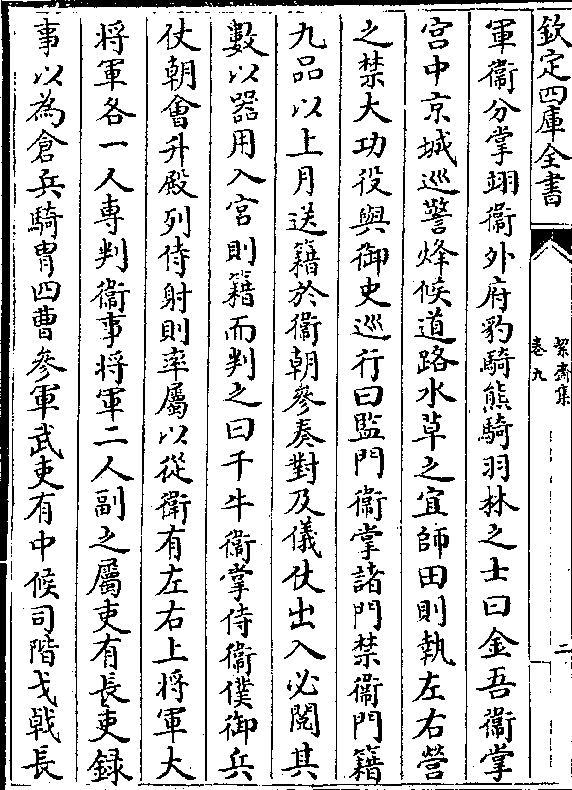 欽定四庫全書
絜齋集
卷九
二
軍衞分掌翊衞外府豹騎熊騎羽林之士曰金吾衞掌
宮中京城巡警烽候道路水草之宜師田則執左右營
之禁大功役與御史巡行曰監門衞掌諸門禁衞門籍
九品以上月送籍於衞朝參奏對及儀仗出入必閱其
數以器用入宮則籍而判之曰千牛衞掌侍衞僕御兵
仗朝會升殿列侍射則率屬以從衞有左右上將軍大
將軍各一人専判衞事將軍二人副之屬吏有長吏録
事以為倉兵騎胄四曹參軍武吏有中候司階戈戟長